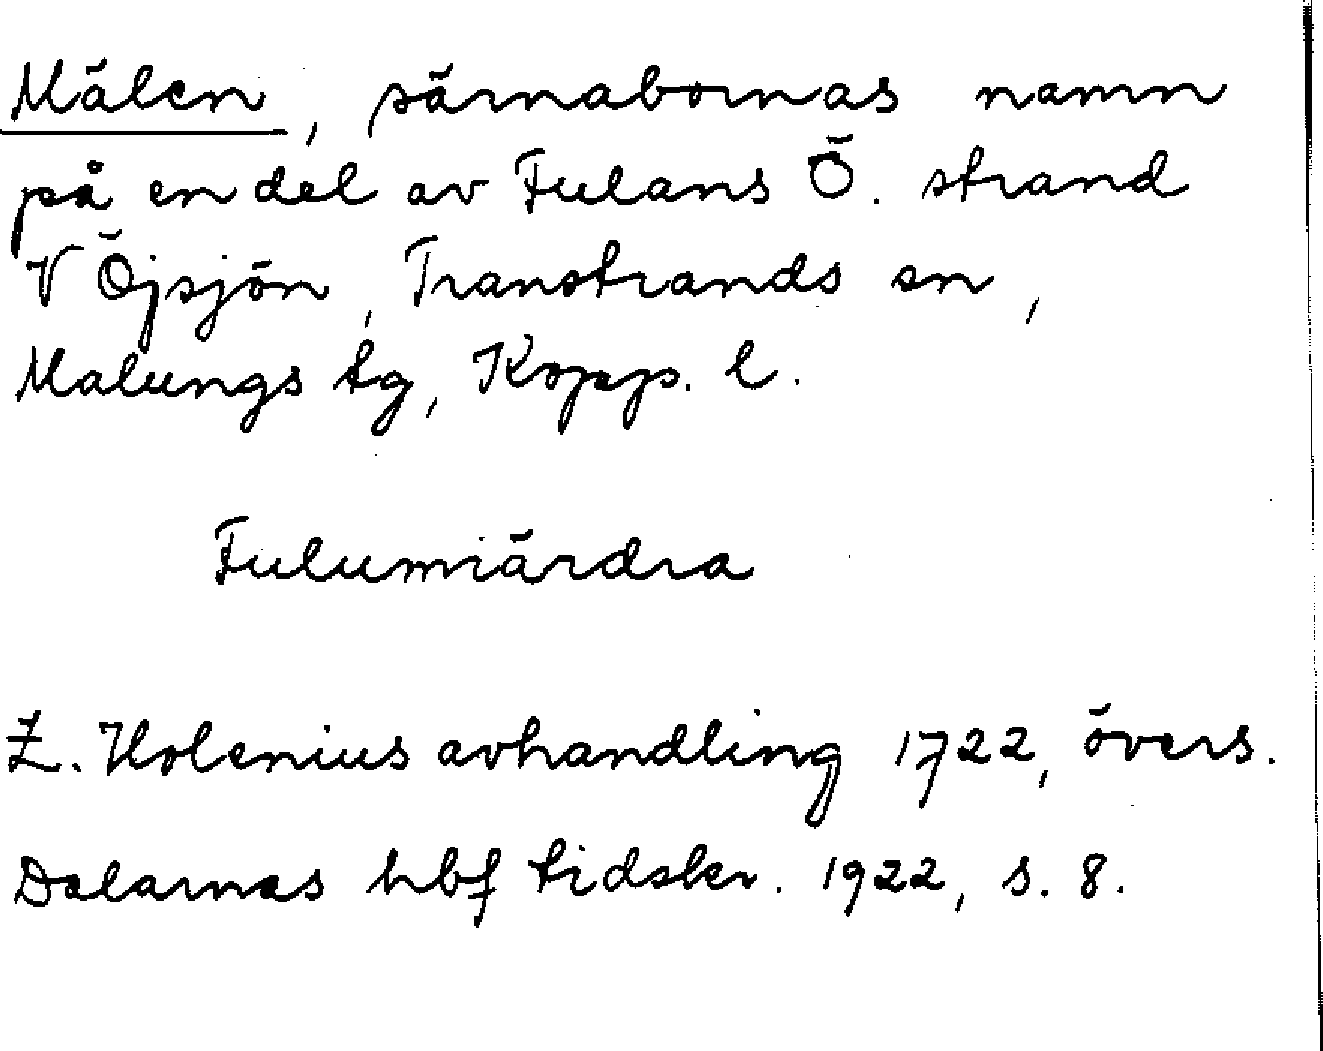 Mälen, särnabornas namn
på en del av Fulans Ö. strand
V Öjsjön, Transtrands sn,
Malungs tg, Kopp. l.
Fulumiärdra
Z. Holenius avhandling 1722, övers.
Dalarnas hbf tidskr. 1922, s. 8.